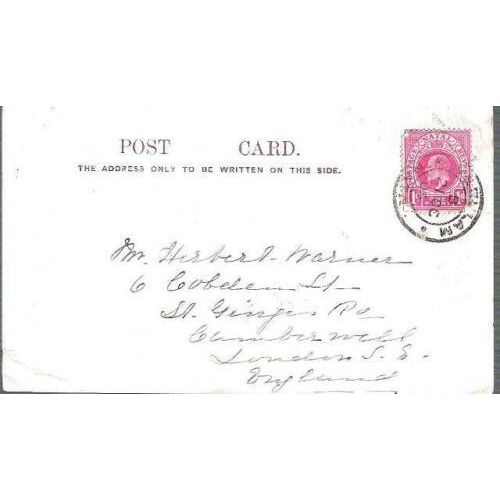 POST CARD.
THE ADDRESS ONLY TO BE WRITTEN ON THIS SIDE.
NATAL
LAM
Mr. Herbert Warner
6 Cobden St
St. Georges Rd
Camberwell
London S. E.
England